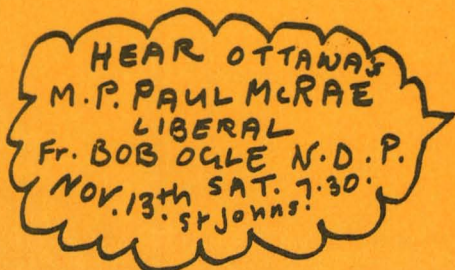 HEAR OTTAWA's
M.P. PAUL McRAE
LIBERAL
Fr. BOB OGLE N.D.P.
NOV. 13.th SAT. 7.30.
St Johns!